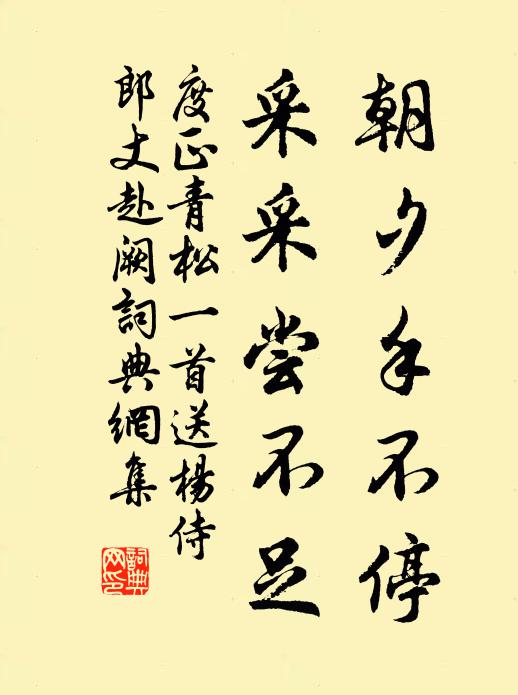 朝夕手不停
采采尝不足
度正青松一首送楊侍
郎丈赴阙詞典網集
詞典网印